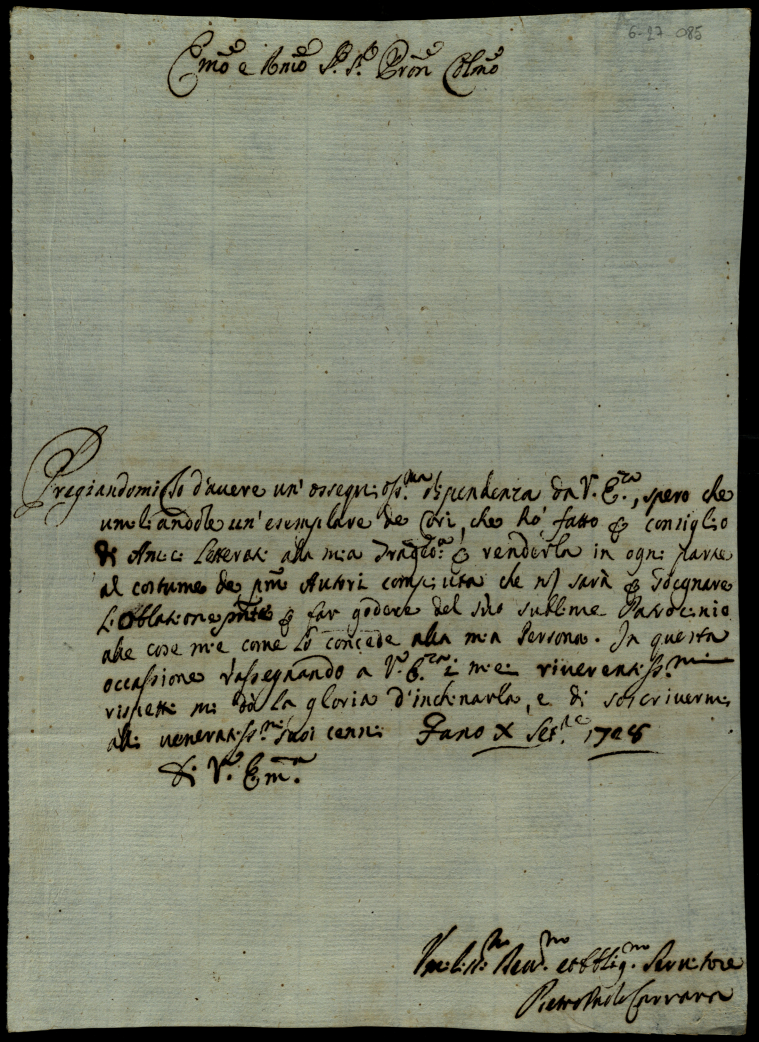 6-27 085
Emo e Rmo Sr. Sr. Pron Colmo
Pregiandomi Io d'auere un' ossequioss.ma dipendenza da V. E.za, spero che
umiliandole un' esemplare de Cori, che hò fatto p consiglio
di Amici Letterati alla mia Tragedia p renderla in ogni parte
al costume de pmi Autori compiuta che nõ sarà p sdegnare
l'Obblatione pnte p far godere del suo sublime Patrocinio
alle cose mie come Lo concede alla mia Persona. In questa
occassione rassegnando a V. E.za i miei riuerentiss.mi
rispetti mi dò la gloria d'inchinarla, e di soscriuermi
alli veneratiss.mi suoi cenni Fano X Set.re 1728
Di V. Em.a
Vmiliss.mo Deu.mo et Obblig.mo Seruitore
Pietro Paolo Carrara